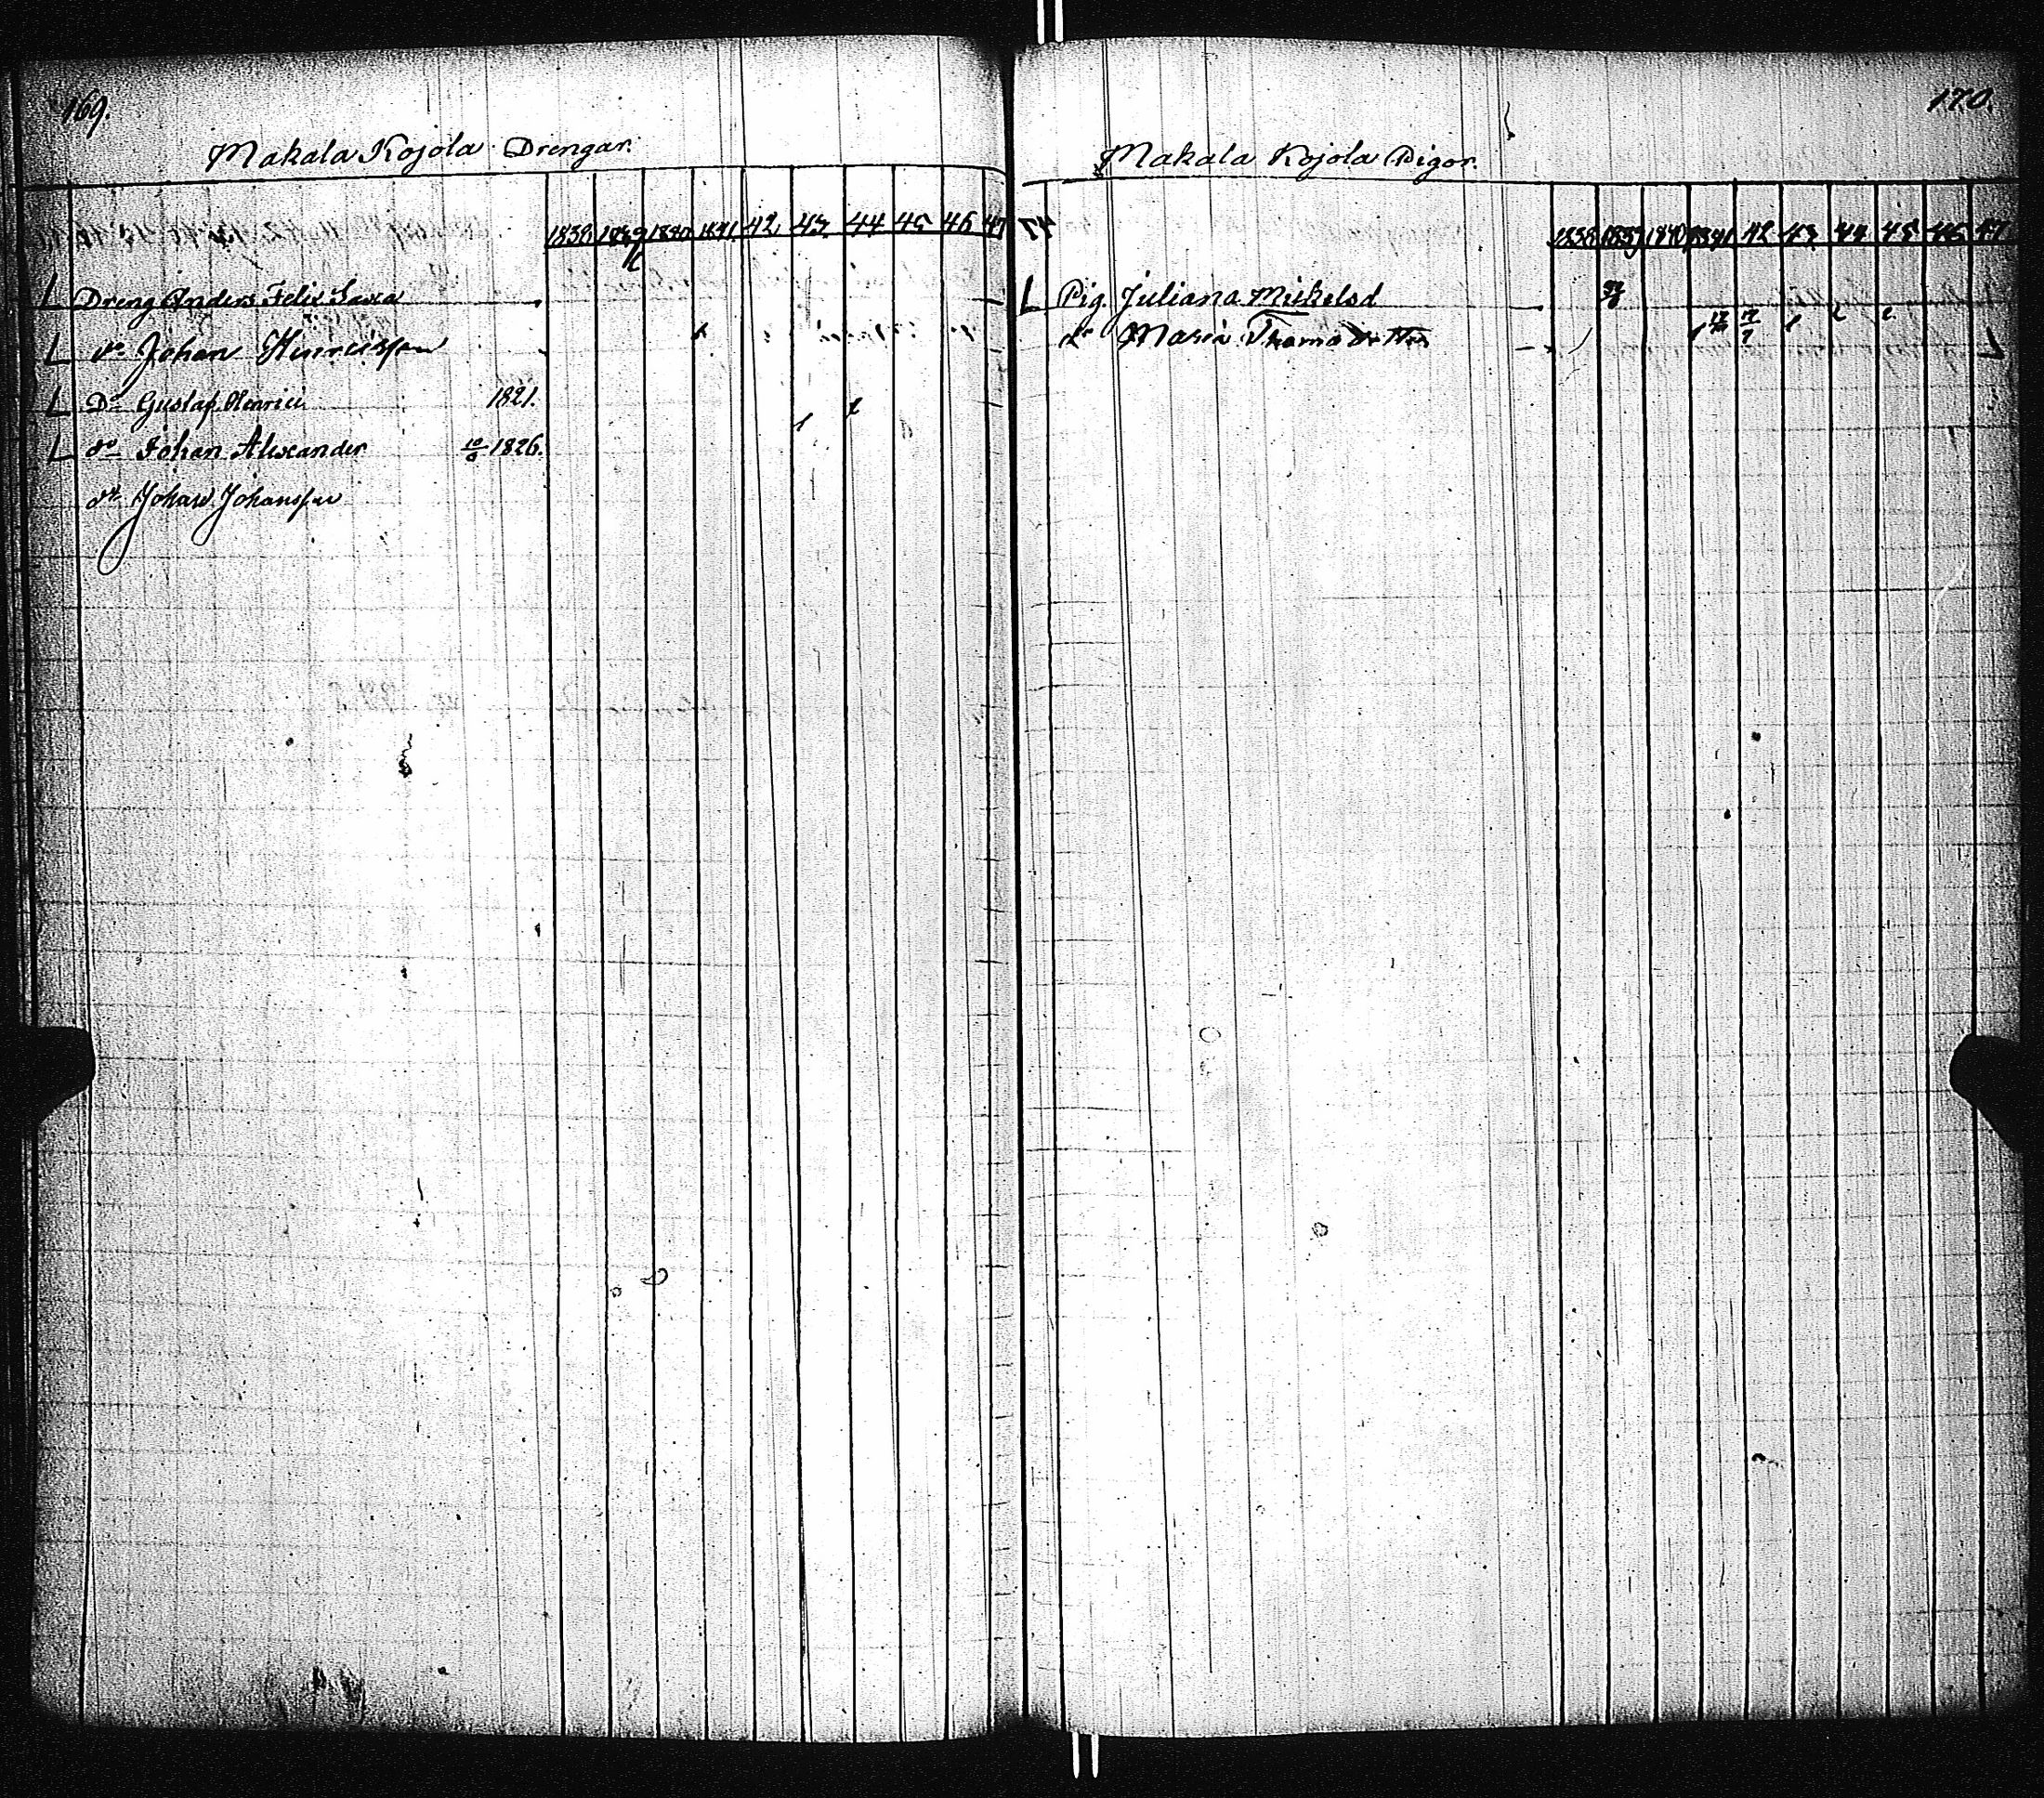 169.
Makala Kojola Drengar.
1838 1839 1840 1841 42 43 44 45 46 47
L Dreng Anders Felix Saxa
L do Johan Henricsson
L Do Gustaf Henrici 1821.
L do Johan Alexander 10/6 1826.
do Johan Johansson
170.
Makala Kojola Pigor.
1838 1839 1840 1841 42 43 44 45 46 47
L Pig. Juliana Mickelsd
do Maria Thomo